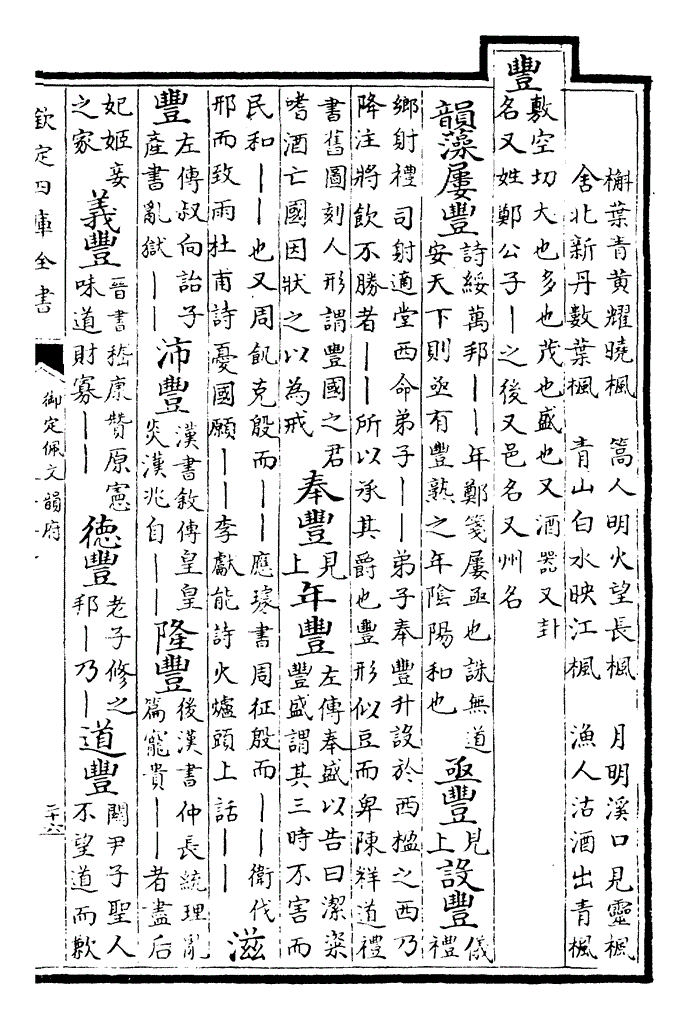 槲葉青黄耀曉楓　篙人明火望長楓　月明溪口見靈楓
舍北新丹數葉楓　青山白水映江楓　漁人沽酒出青楓
豐
敷空切大也多也茂也盛也又酒器又卦
名又姓鄭公子丨之後又邑名又州名
韻藻屢豐
詩綏萬邦丨丨年鄭箋屢亟也誅無道
安天下則亟有豐熟之年陰陽和也
亟豐
見
上
設豐
儀
禮
鄉射禮司射適堂西命弟子丨丨弟子奉豐升設於西楹之西乃
降注將飲不勝者丨丨所以承其爵也豐形似豆而卑陳祥道禮
書舊圖刻人形謂豐國之君
嗜酒亡國因狀之以為戒
奉豐
見
上
年豐
左傳奉盛以告曰潔粢
豐盛謂其三時不害而
民和丨丨也又周飢克殷而丨丨應璩書周征殷而丨丨衛伐
邢而致雨杜甫詩憂國願丨丨李獻能詩火爐頭上話丨丨
滋
豐
左傳叔向詒子
産書亂獄丨丨
沛豐
漢書敘傳皇皇
炎漢兆自丨丨
隆豐
後漢書仲長統理亂
篇寵貴丨丨者盡后
妃姬妾
之家
義豐
晉書嵇康賛原憲
味道財寡丨丨
德豐
老子修之
邦丨乃丨
道豐
關尹子聖人
不望道而歉
欽定四庫全書
御定佩文韻府
二十六